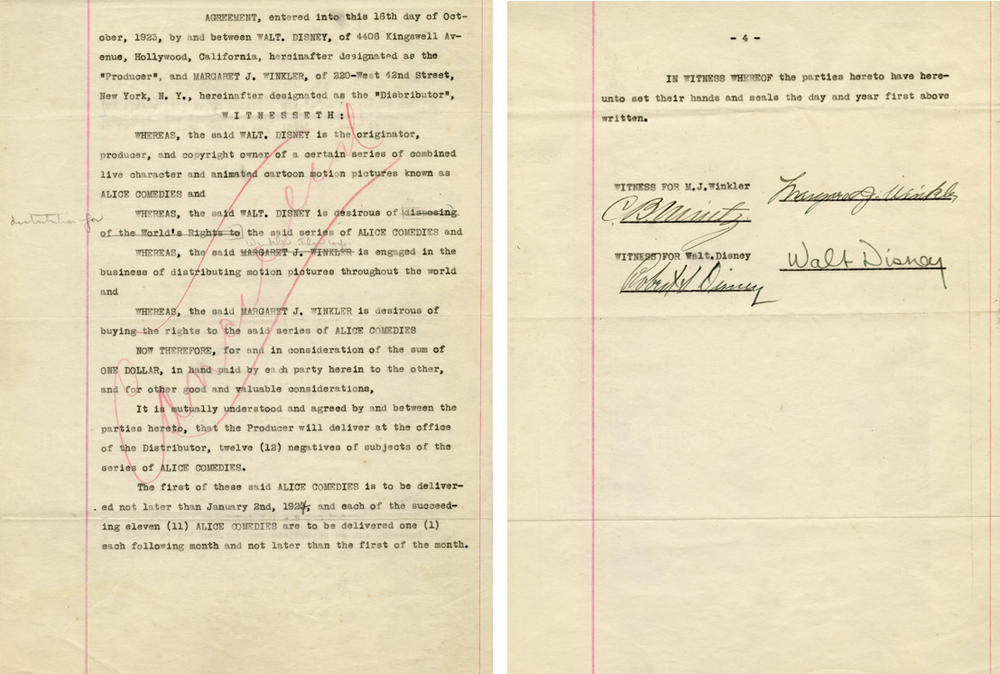 AGREEMENT, entered into this 16th day of Oct-
ober, 1923, by and between WALT. DISNEY, of 4406 Kingswell Av-
enue, Hollywood, California, hereinafter designated as the
"Producer", and MARGARET J. WINKLER, of 220-West 42nd Street,
New York, N. Y., hereinafter designated as the "Disbributor",
WITNESSETH:
WHEREAS, the said WALT. DISNEY is the originator,
producer, and copyright owner of a certain series of combined
live character and animated cartoon motion pictures known as
ALICE COMEDIES and
distribution for
WHEREAS, the said WALT. DISNEY is desirous of disposing
of the World's Rights to the said series of ALICE COMEDIES and
Winkler Film Corp
WHEREAS, the said MARGARET J. WINKLER is engaged in the
business of distributing motion pictures throughout the world
and
WHEREAS, the said MARGARET J. WINKLER is desirous of
buying the rights to the said series of ALICE COMEDIES
NOW THEREFORE, for and in consideration of the sum of
ONE DOLLAR, in hand paid by each party herein to the other,
and for other good and valuable considerations,
It is mutually understood and agreed by and between the
parties hereto, that the Producer will deliver at the office
of the Distributor, twelve (12) negatives of subjects of the
series of ALICE COMEDIES.
The first of these said ALICE COMEDIES is to be deliver-
ed not later than January 2nd, 1924, and each of the succeed-
ing eleven (11) ALICE COMEDIES are to be delivered one (1)
each following month and not later than the first of the month.
Cancelled
- 4 -
IN WITNESS WHEREOF the parties hereto have here-
unto set their hands and seals the day and year first above
written.
WITNESS FOR M.J.Winkler
Margaret J. Winkler
C B Mintz
WITNESS FOR Walt.Disney
Walt Disney
Robert S Disney